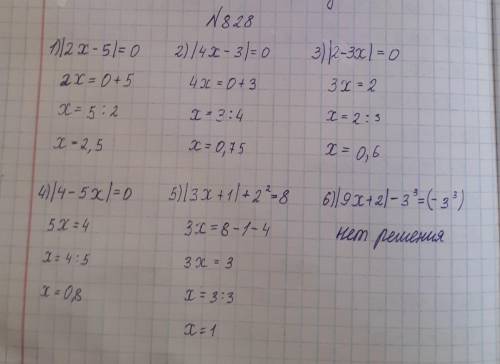 №828
1) |2x-5|=0
2x=0+5
x=5:2
x=2,5
2) |4x-3|=0
4x=0+3
x=3:4
x=0,75
3) |2-3x|=0
3x=2
x=2:3
x=0,6
4) |4-5x|=0
5x=4
x=4:5
x=0,8
5) |3x+1|+2²=8
3x=8-1-4
3x=3
x=3:3
x=1
6) |9x+2|-3³=(-3³)
нет решения